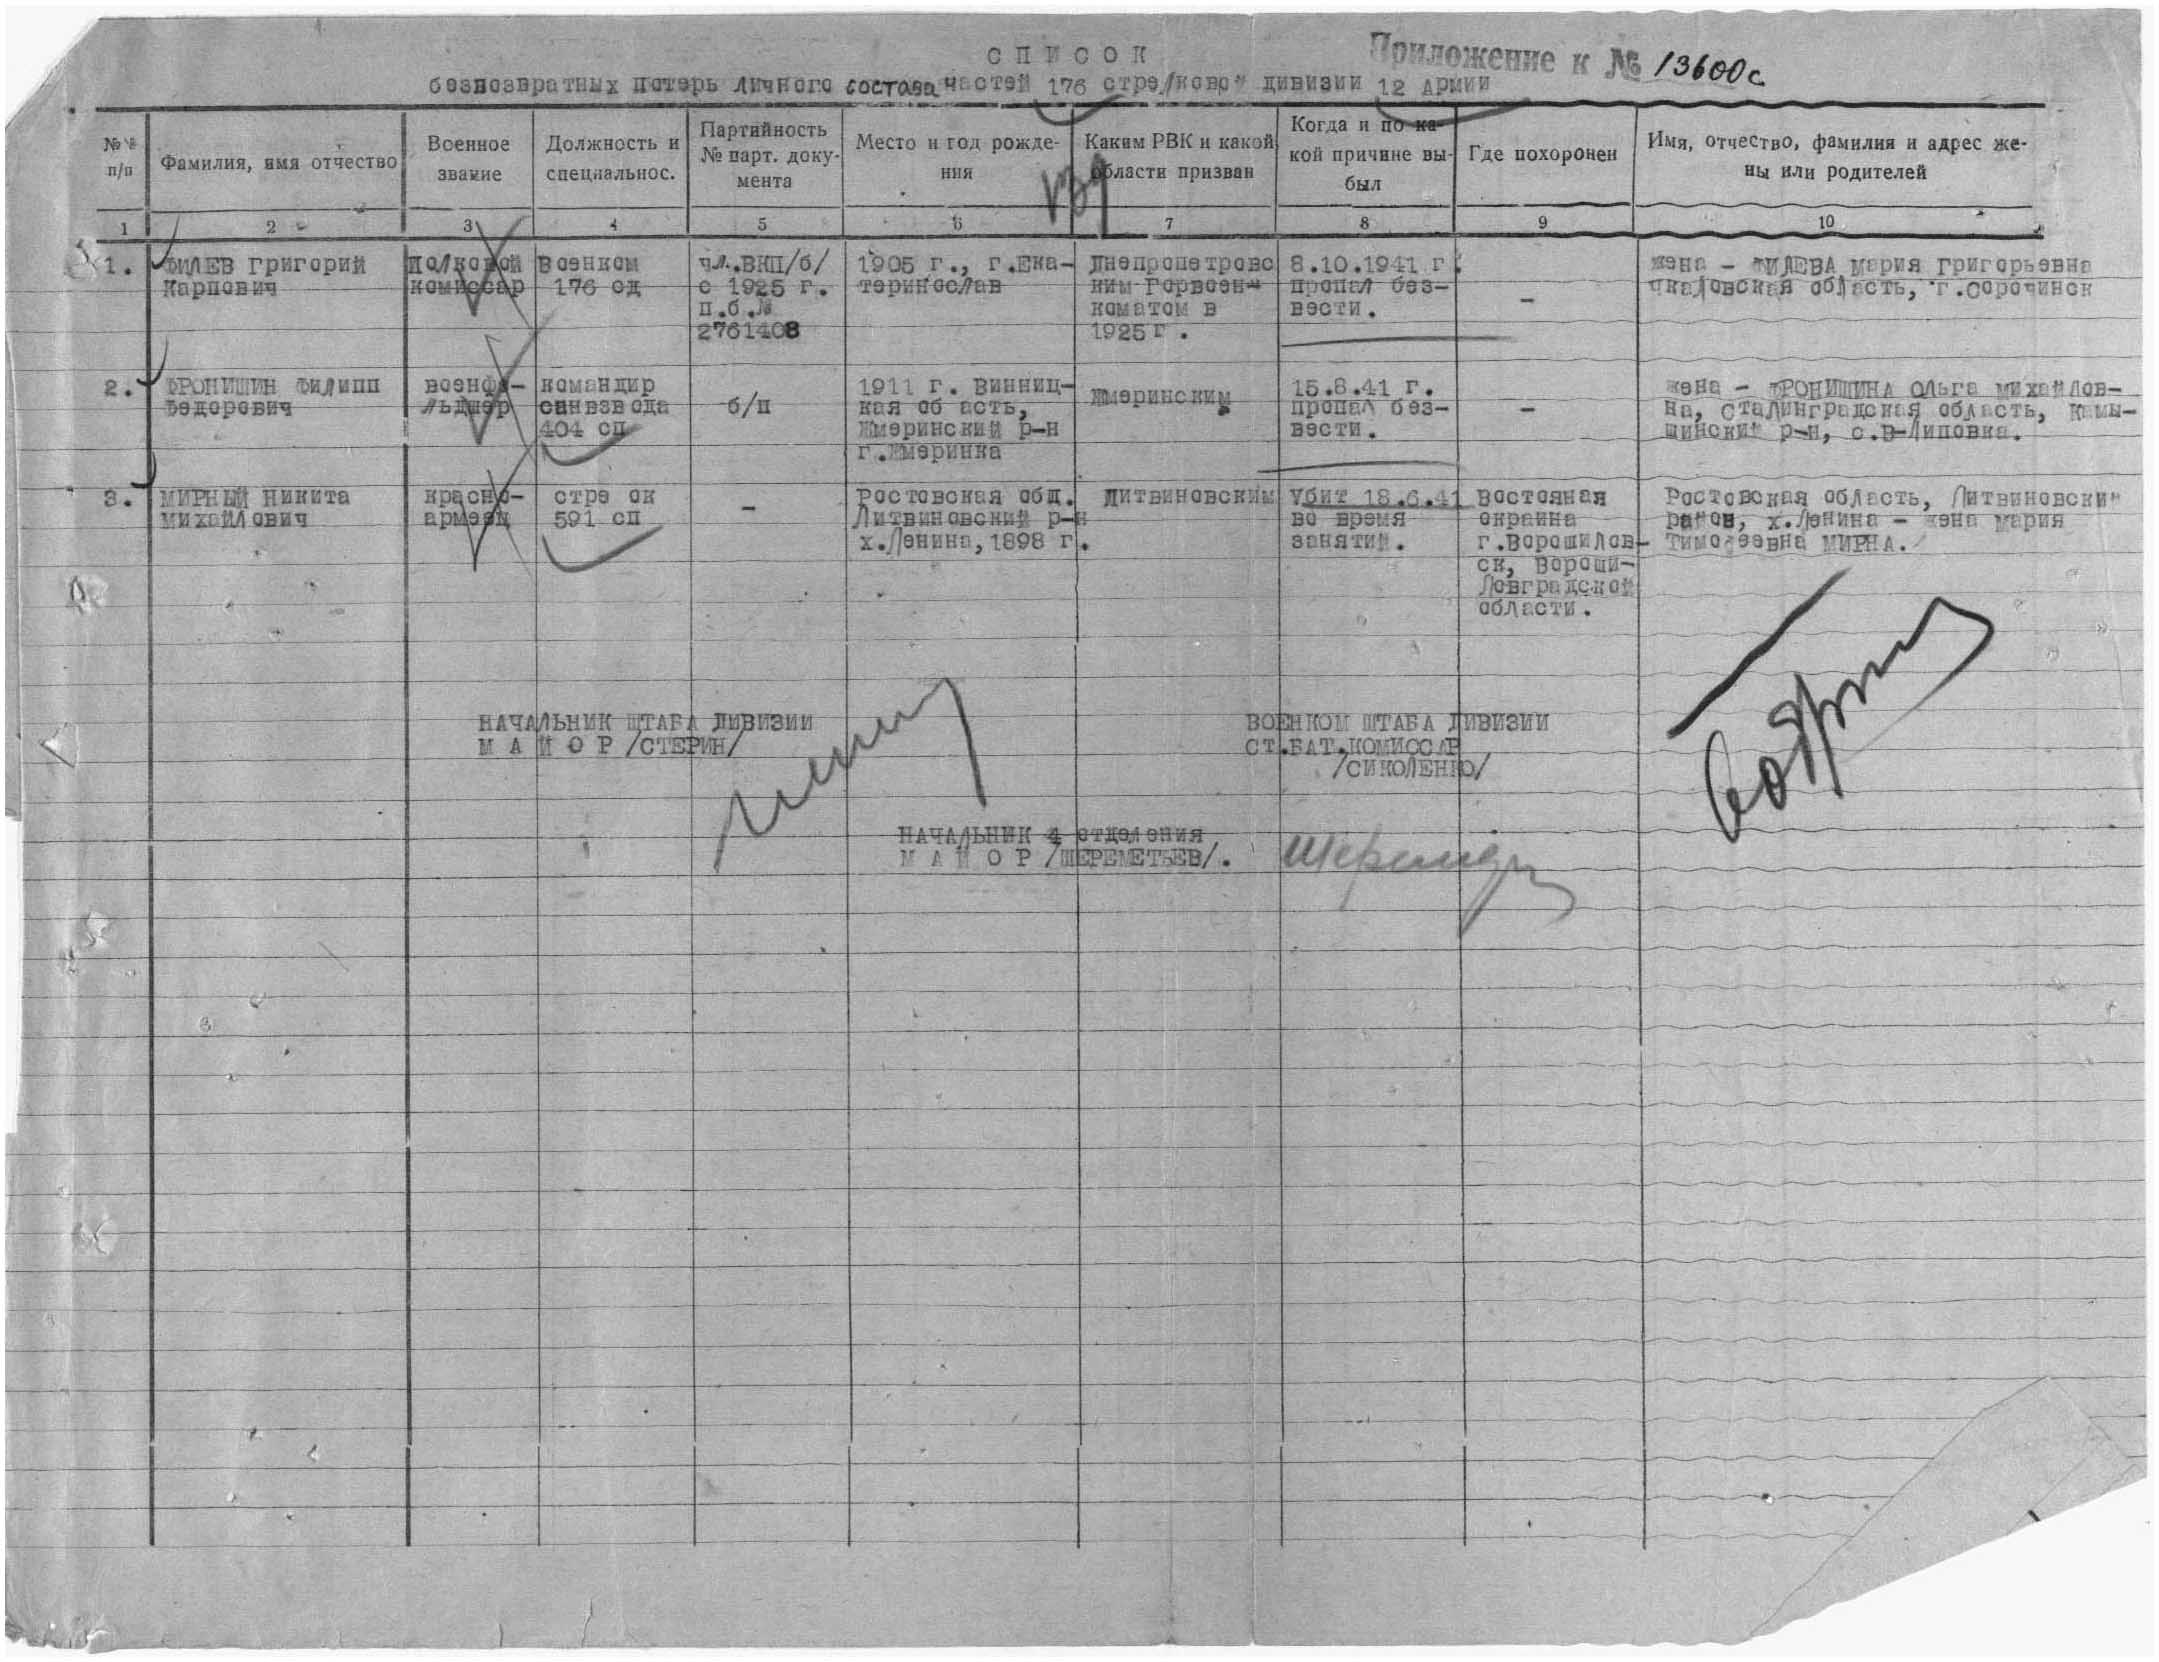 СПИСОК
Приложение к № 13600с
безвозвратных потерь личного состава частей 176 стрелковой дивизии 12 Армии
№№ п/п
Фамилия, имя отчество
Военное звание
Должность и специальнос.
Партийность № парт. документа
Место и год рождения
Каким РВК и какой области призван
Когда и по какой причине выбыл
Где похоронен
Имя, отчество, фамилия и адрес жены или родителей
1 2 3 4 5 6 7 8 9 10
1.
ФИЛЕВ Григорий
Карпович
Полковой
комиссар
Военком
176 сд
чл.ВКП/б/
с 1925 г.
п.б.№
2761408
1905 г., г.Ека-
теринослав
Днепропетровс
ким Горвоен-
коматом в
1925 г.
8.10.1941 г.
пропал без-
вести.
-
жена - ФИЛЕВА Мария Григорьевна
Чкаловская область, г.Сорочинск
2.
ФРОНИШИН Филипп
Федорович
военфе-
льдшер
командир
санвзвода
404 сп
б/п
1911 г. Винниц-
кая об асть,
Жмеринский р-н
г.Жмеринка
Жмеринским
15.8.41 г.
пропал без-
вести.
-
жена - ФРОНИШИНА Ольга Михайлов-
на, Сталинградская область, Камы-
шинский р-н, с.В-Липовка.
3.
МИРНЫЙ Никита
Михайлович
красно-
армеец
стре ок
591 сп
-
Ростовская обл.
Литвиновский р-н
х.Ленина, 1898 г.
Литвиновским
Убит 18.6.41
во время
занятий.
Востояная
окраина
г.Ворошилов-
ск, Вороши-
ловградской
области.
Ростовская область, Литвиновский
район, х.Ленина - жена Мария
Тимофеевна МИРНА.
НАЧАЛЬНИК ШТАБА ДИВИЗИИ
М А Й О Р /СТЕРИН/
ВОЕНКОМ ШТАБА ДИВИЗИИ
СТ.БАТ.КОМИССАР
/СИКОЛЕНКО/
НАЧАЛЬНИК 4 отделения
М А Й О Р /ШЕРЕМЕТЬЕВ/.